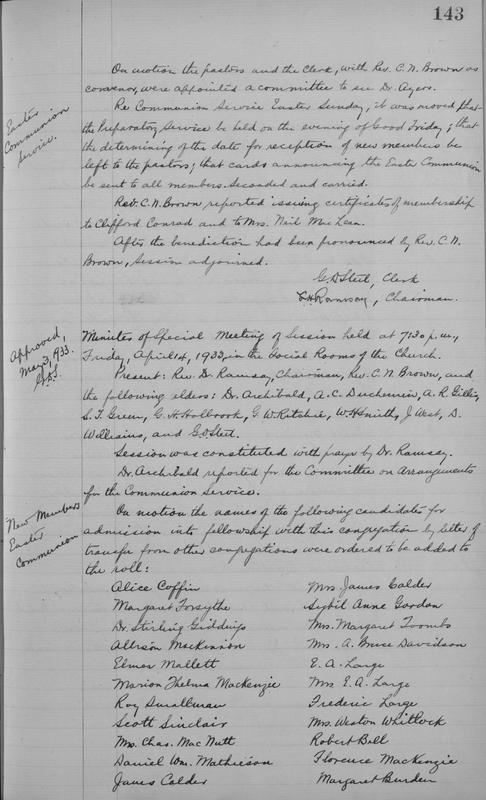 143
On motion the pastors and the Clerk, with Rev. C. N. Brown as
convenor, were appointed a committee to see Dr. Ayers.
Easter
Communion
Service.
Re Communion Service Easter Sunday, it was moved that
the Preparatory Service be held on the evening of Good Friday; that
the determining of the date for reception of new members be
left to the pastors; that cards announcing the Easter Communion
be sent to all members. Seconded and carried.
Rev. C. N. Brown reported issuing certificates of membership
to Clifford Conrad and to Mrs. Neil MacLean.
After the benediction had been pronounced by Rev. C. N.
Brown, Session adjourned.
G. D. Steel, Clerk
Ramsay, Chairman.
Approved,
May 3, 1933.
G.D.S.
Minutes of Special Meeting of Session held at 7:30 p.m.,
Friday, April 14, 1933, in the Social Rooms of the Church.
Present: Rev. Dr. Ramsay, Chairman, Rev. C. N. Brown, and
the following elders: Dr. Archibald, A. C. Duchemin, A. R. Gillis,
S. T. Green, G. H. Holbrook, G. W. Ritchie, W. H. Smith, J. West, D.
Williams, and G. D. Steel.
Session was constituted with prayer by Dr. Ramsay.
Dr. Archibald reported for the Committee on Arrangements
for the Communion Service.
New Members
Easter
Communion
On motion the names of the following candidates for
admission into fellowship with this congregation by letter of
transfer from other congregations were ordered to be added to
the roll:
Alice Coffin Mrs. James Calder
Margaret Forsythe Sybil Anne Gordon
Dr. Stirling Giddings Mrs. Margaret Toombs
Allison Mackinnon Mrs. A. Bruce Davidson
Elmer Mallett E. A. Large
Marion Thelma Mackenzie Mrs. E. A. Large
Roy Smallman Frederic Large
Scott Sinclair Mrs. Weston Whitlock
Mrs. Chas. MacNutt Robert Bell
Daniel Wm. Mathieson Florence MacKenzie
James Calder Margaret Burden